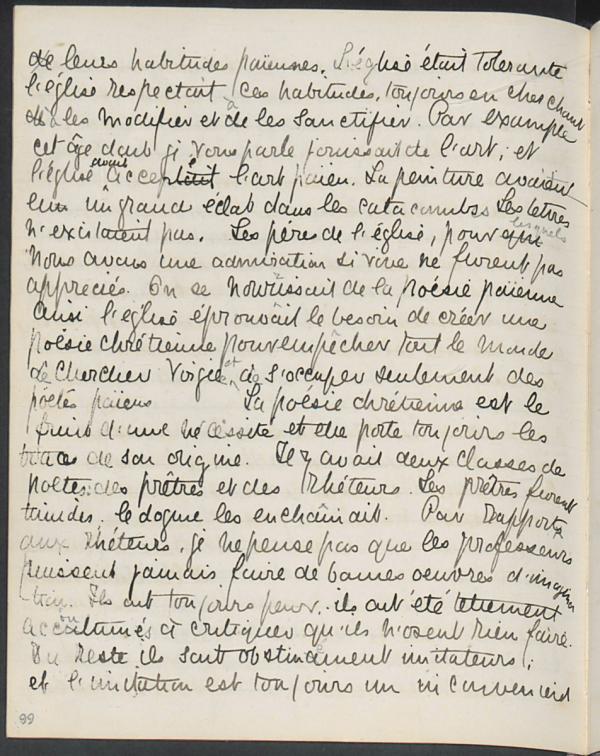 de leurs habitudes païennes. L'église était tolerante
l'église respectait ces habitudes, toujours en cherchant
à les modifier et de les sanctifier. Par example
cet âge dont je vous parle jouissait de l'art, et
l'église avait accepté l'art païen. La peinture avaient
eu un grand éclat dans les catacombs. Les lettres
n'existaient pas. Les père de l'église, pour lesquels
nous avons une admiration si vive ne furent pas
appreciés. On se nourissait de la poésie païenne
Ainsi l'eglise éprouvait le besoin de créer une
poésie chrétienne pour empêcher tout le monde
de chercher Virgile et de s'occuper seulement des
poëtes païens La poésie chrétienne est le
fruit d'une nécéssité et elle porte toujours les
traces de son origine. Il y avait deux classes de
poetes: des prêtres et des Rhéteurs. Les prêtres furent
timides, le dogme les enchaînait. Par rapport
aux Rhéteurs, je ne pense pas que les professeurs
puissent jamais faire de bonnes oeuvres d'imagina
-tion. Ils ont toujours peur, ils ont été tellement
accoutumés à critiquer qu'ils n'osent rien faire.
Du reste ils sont obstinément imitateurs;
et l'imitation est toujours un inconvenient
99